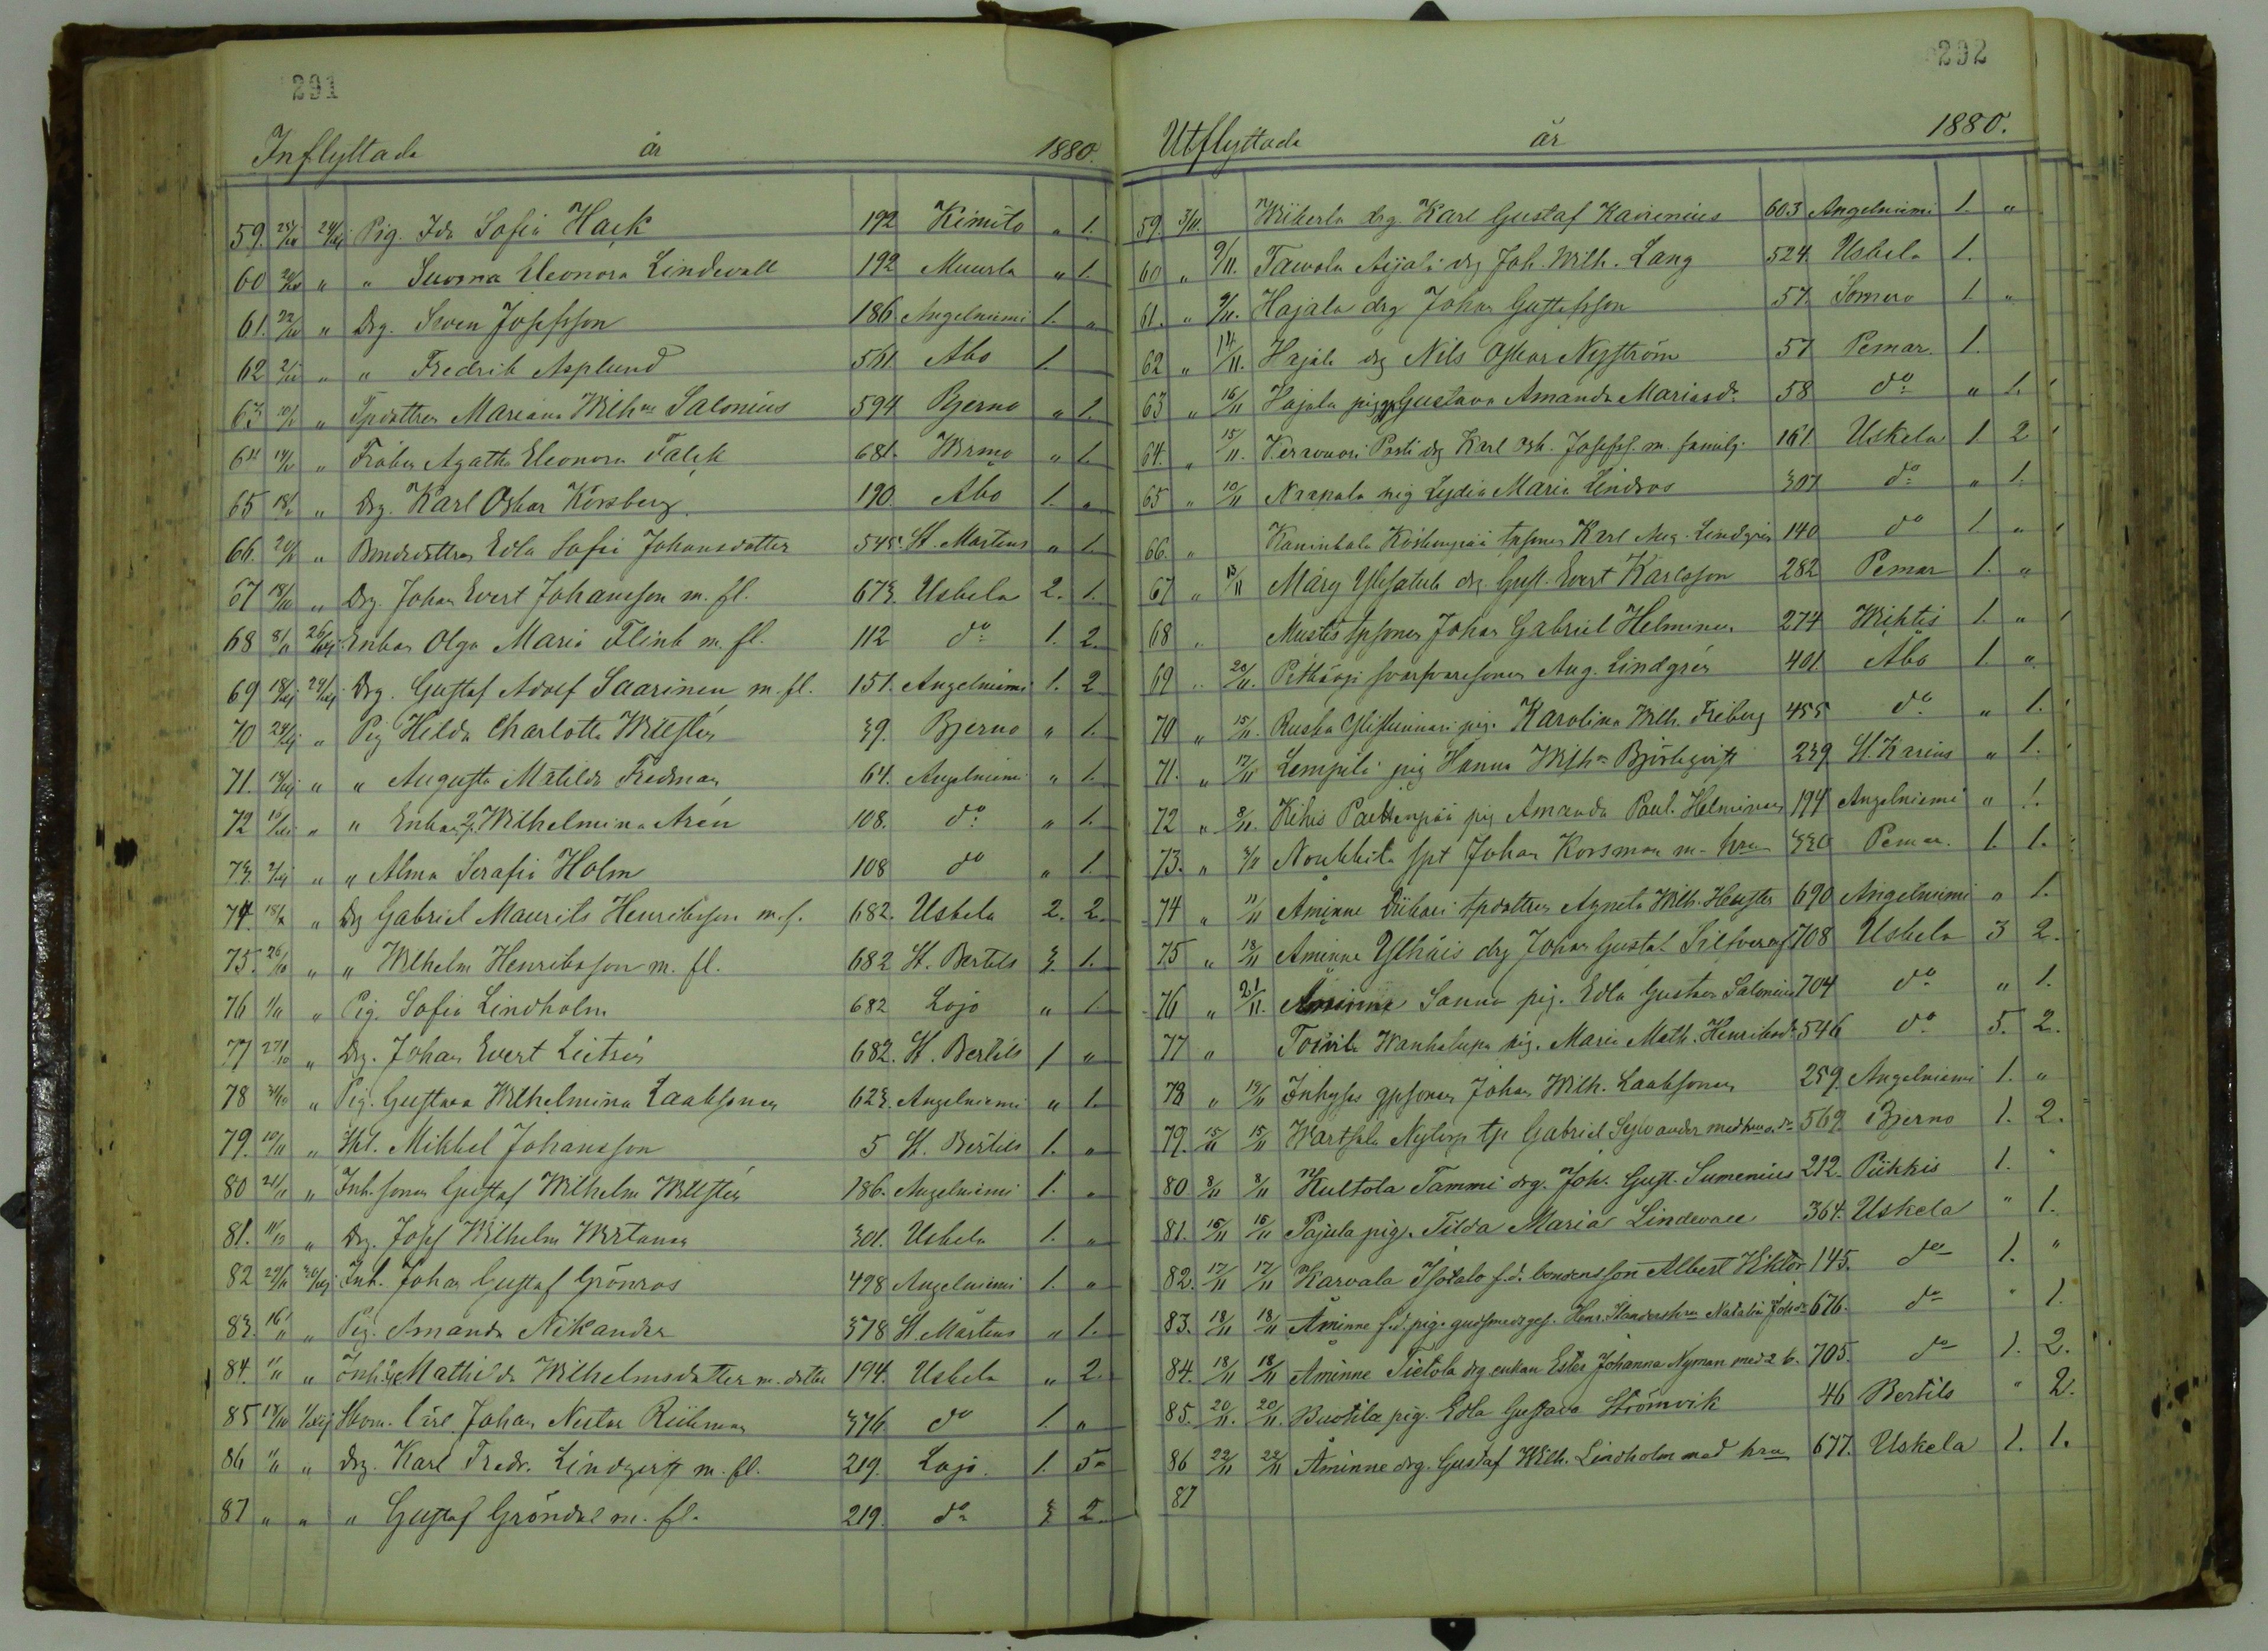 291
Inflyttade år 1880.
59. 24/XI Pig. Ida Sofia Hack 192 Kimito " 1.
60 " " Suoma Eleonora Lindevall 192 Muurla " 1.
61. " Drg. Sven Josefsson 186 Angelniemi 1. "
62 " " Fredrik Asplund 511. Abo 1.
63 " Tpdottren Mariana Wilh:na Salonius 594 Bjerno " 1.
64 " Fröken Agatha Eleonora Falck 681. Wirmo " 1.
65 " Drg. Karl Oskar Korsberg 190. Abo 1. "
66. " Bondedottren Edla Sofia Johansdotter 545. St. Martens " 1.
67 " Drg. Johan Evert Johansson m. fl. 673. Uskela 2. 1.
68 Enkan Olga Maria Flink m. fl. 112 do 1. 2.
69 Drg. Gustaf Adolf Saarinen m. fl. 151. Angelniemi 1. 2
70 " Pig Hilda Charlotta Willstén 39. Bjerno " 1.
71. " " Augusta Matilda Fredman 64. Angelniemi " 1.
72 " " Enkan Wilhelmina Arén 108. do " 1.
73. " " Alma Serafia Holm 108 do " 1.
74. " Drg Gabriel Maurits Henriksson m. f. 682. Uskela 2. 2.
75. 26/10 " " Wilhelm Henriksson m. fl. 682 St. Bertils 3. 1.
76 1/11 " Pig. Sofia Lindholm 682 Lojo " 1
77 27/10 " Drg. Johan Evert Lietzén 682. St. Bertils 1 "
78 " Pig. Gustava Wilhelmina Laaksonen 623. Angelniemi " 1.
79. 10/11 " Mikkel Johansson 5 St. Bertils 1. "
80 " Inh. sonen Gustaf Wilhelm Willstén 186. Angelniemi 1. "
81. " Drg. Josef Wilhelm Wirtanen 301. Uskela 1. "
82 Inh. Johan Gustaf Grönroos 498 Angelniemi 1. "
83. " Pig. Amanda Nikander 378 St. Mårtens " 1.
84. " " Mathilda Wilhelmsdotter m. dotter 194. Uskela " 2.
85 Carl Johan Nestor Riikman 376. do 1. "
86 " Drg. Karl Fredr. Lindqvist m. fl. 219. Lojo. 1. 5
87 " " " Gustaf Gröndal m. fl. 219. do 3 2.
292
Utflyttade år 1880.
59. 3/11. Wiikerla drg. Karl Gustaf Kaurenius 603 Angelniemi 1. "
60 " 9/11. Tawola Aijälä drg Joh. Wilh. Lang 524. Uskela 1.
61. " 9/11. Hajala drg Johan Gustafsson 57. Somero 1. "
62 " 14/11. Hajala drg Nils Oskar Nyström 57 Pemar 1.
63 " 16/11 Hajala pig Gustava Amanda Mariasdr 58 do " 1.
64. " 15/11. Keravuori Posti drg Karl Osk. Josefss. m. familj. 161. Uskela 1 2
65 " 10/11 Naapala pig Lydia Maria Lindros 307 do " 1.
66. " Kaninkola Köskenpää tpsonen Karl Aug. Lindgrén 140 do 1. "
67 " 13/11 Märy Ylisatula drg Gust. Evert Karlsson 282 Pemar 1. "
68 " Mustis tpsonen Johan Gabriel Helminen 274 Wihtis 1. "
69 " 20/11. Pitkäoja svarfvaresonen Aug. Lindgrén 401 Åbo 1. "
70 " 15/11. Ruska pig. Karolina Wilh. Friberg 455 do " 1.
71. " 17/11 Lempilä pig Hanna Wilh:na Björkqvist 239 St. Karins " 1.
72 " 8/11. Kihis Paltenpää pig Amanda Paul. Helminen 194 Angelniemi " 1.
73. " 3/11 Noukkila spt Johan Korsman m. hru 330 Pemar. 1. 1.
74 " 11/11 Åminne Viikari tpdottren Agneta Wilh. 690 Angelniemi " 1.
75 " 18/11 Åminne Ylhäis drg Johan Gustaf 708 Uskela 3 2.
76 " 21/11. Åminne Sauna pig. Edla Gustava Salonius 704 do " 1.
77 " Toivila Wanhatupa pig. Maria Math. Henriksdr 546 do 5. 2.
78 " 19/11 Inhyses gpsonen Johan Wilh. Laaksonen 259. Angelniemi 1. "
79. 15/11 15/11 Wartsala Nytorp tp Gabriel Sylvander med hru o. dr 569. Bjerno 1. 2.
80 8/11 8/11 Kultola Tammi drg. Joh. Gust. Sumenius 212. Piikkis 1. "
81. 16/11 16/11 Pajula pig. Tilda Maria Lindevall 364. Uskela " 1.
82. 17/11 17/11 Karvala Isotalo f.d. bondensson Albert Viktor 145. do 1. "
83. 18/11 18/11 Åminne f.d. pig. Natalia 676. do " 1.
84. 18/11 18/11 Åminne Tietola drg enkan Ester Johanna Nyman med 2 b. 705. do 1. 2.
85. 20/11. 20/11. Buotila pig. Edla Gustava Strömvik 46 Bertils " 2.
86 22/11 22/11 Åminne drg. Gustaf Wilh. Lindholm med hru 677. Uskela 1. 1.
87